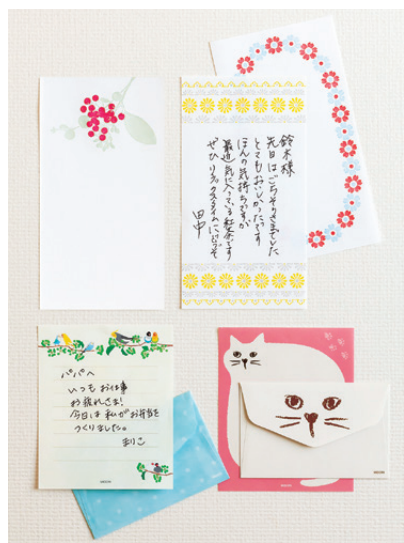 鈴木様
先日はごちそうさまでした
とてもおいしかったです
ほんの気持ちですが
最近気に入っている紅茶です
ぜひリラックスタイムにどうぞ
田中
パパへ
いつもお仕事
お疲れさま!
今日は私がお弁当を
つくりました。
まりこ